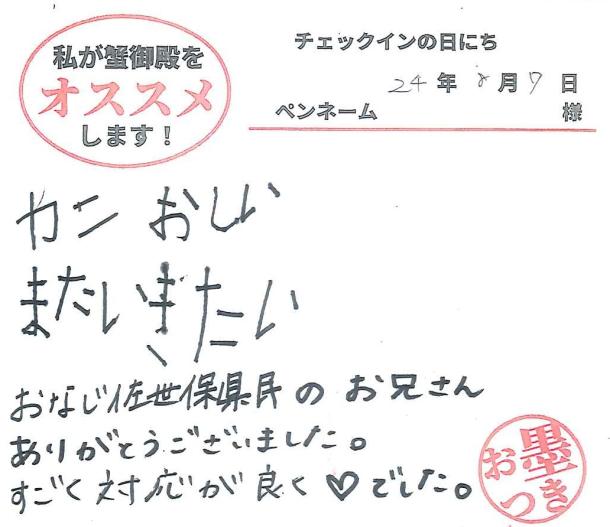 私が蟹御殿を
オススメ
します！
チェックインの日にち
24年8月7日
ペンネーム 様
カニ おしい
またいきたい
おなじ佐世保県民の お兄さん
ありがとうございました。
すごく対応が良く♡でした。
お墨
つき